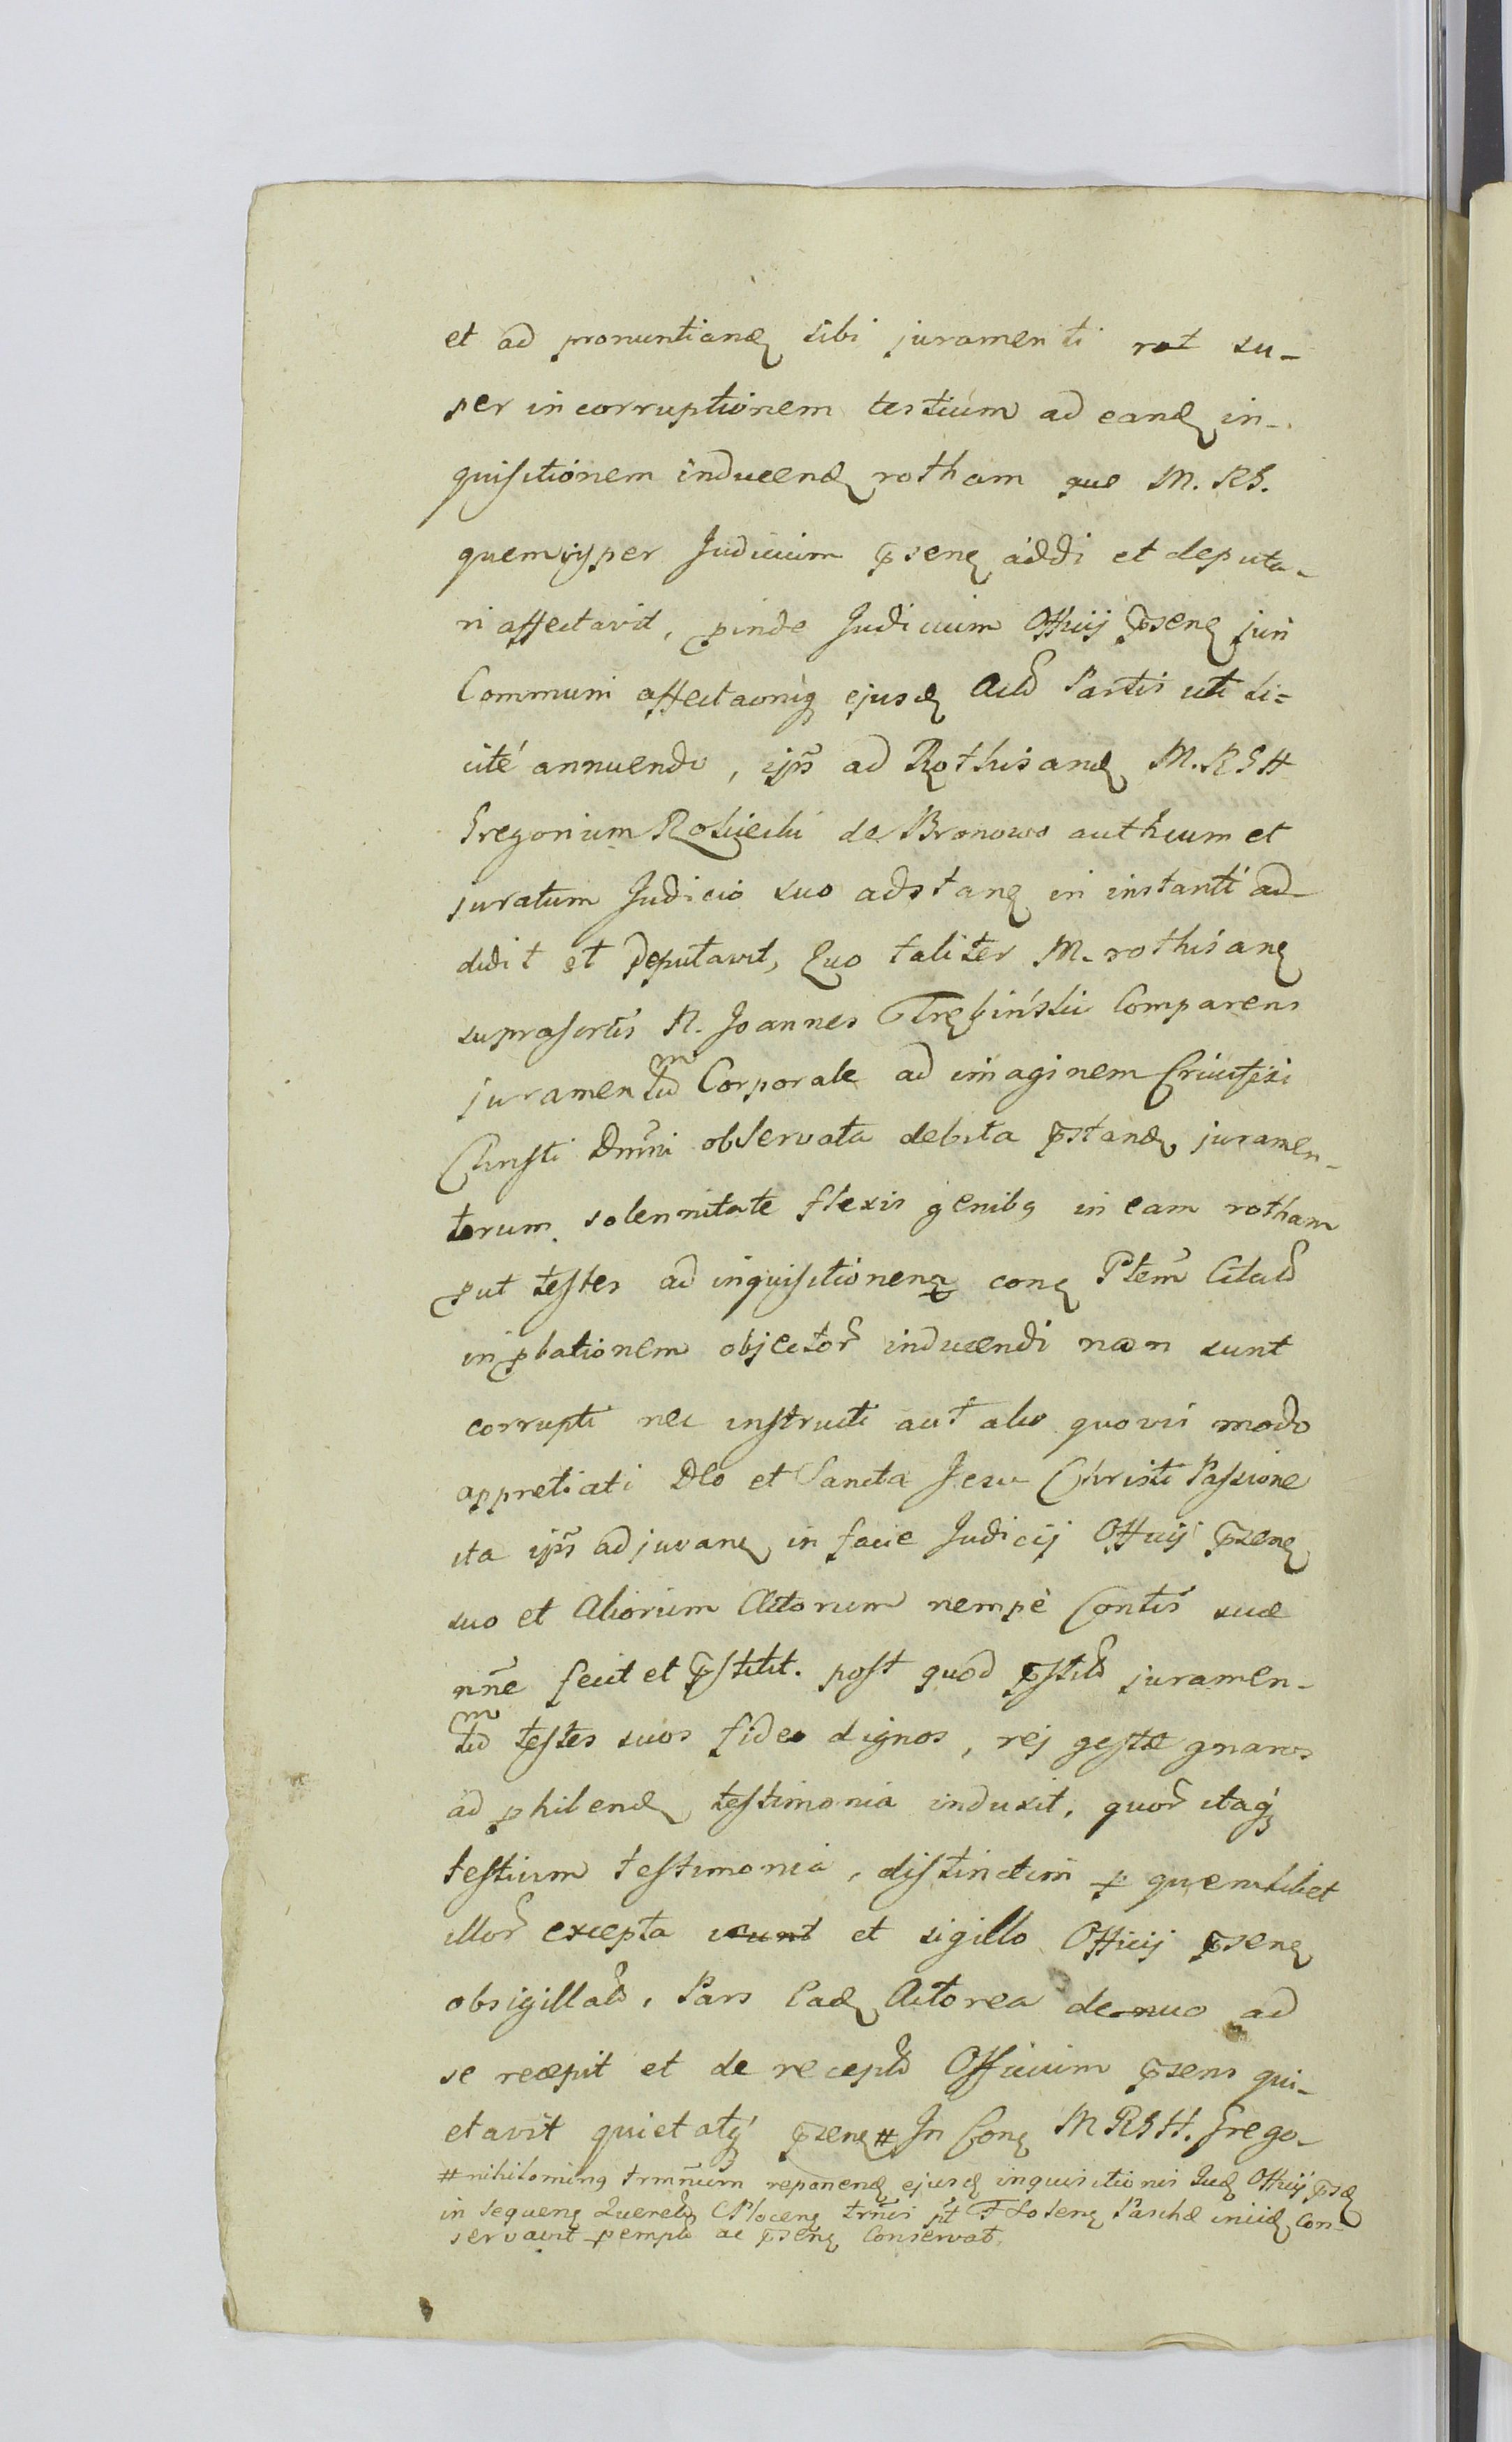 et ad pronuntiandȩ sibi juramenti rot su-
per incorruptionem testium ad eandȩ in-
quisitionem inducendȩ rotham que M. RG.
quempiz per Judicium p̄senȩ addi et deputa-
ri affectavit, pinde Judicium Officij p̄senȩ juri
Communi affectaoniq̨ ejusdȩ Act Partis uti li=
cité annuendo, ips̄ ad Rothisandȩ M. RGH
Gregorium Rościecki de Bronowo auth̄cum et
juratum Judicio suo adstanȩ in instanti ad-
didit et deputavit, Quo taliter M. rothisanȩ
suprascrtis N. Joannes Trębiński Comparens
juramentum Corporale ad imaginem Crucifixi
Christi Dn̄ni observata debita p̄standȩ juramen-
torum solennitate flexis genibq in eam rotham
put testes ad inquisitionenq̨ conȩ Ptem̄ Citatt
in pbationem objector̄ inducendi non sunt
corrupti nec instructi aut alio quovis modo
appretiati Deo et Sancta Jesu Christi Passione
ita ips̄ adjuvanȩ in facie Judicij Officij p̄senȩ
suo et Aliorum Actorum nempè Contis̄ suae
nn̄e fecit et p̄stitit. post quod p̄stit juramen-
tum testes suos fide dignos, rej gestae gnaros
ad phibendȩ testimonia induxit, quor̄ itaq̨
testium testimonia, distinctim p quemlibet
illor̄ excepta sunt et sigillo Officij p̄senȩ
obsigillatt, Pars Eadȩ Actorea denuo ad
se recepit et de receptt Officium p̄sens qui-
etavit quietatq̨ p̄senȩ # In Conȩ M RGH. Grego-
# nihilominq trmn̄um reponendȩ ejusdȩ inquisitionis Judȩ Officij p̄sȩ
in sequenȩ Querelȩ Plocenȩ trn̄is pt F Sostenȩ Paschae inciidȩ Con-
servavit pempt ac p̄senȩ Conservat.